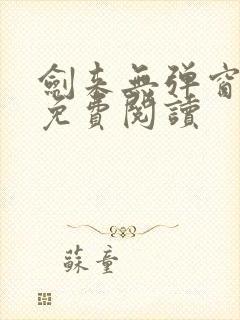 劍来無弹窗
免費閱讀
蘇童